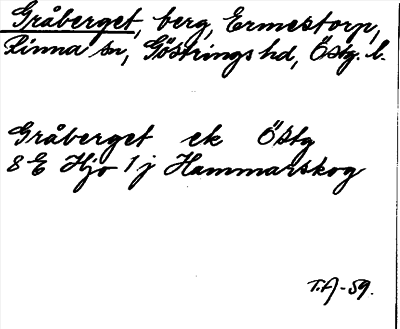 Gråberget, berg, Ermestorp,
Rinna sn, Göstrings hd, Östg. l.
Gråberget ek Östg
8 E Hjo 1 j Hammarskog
T.A-59.